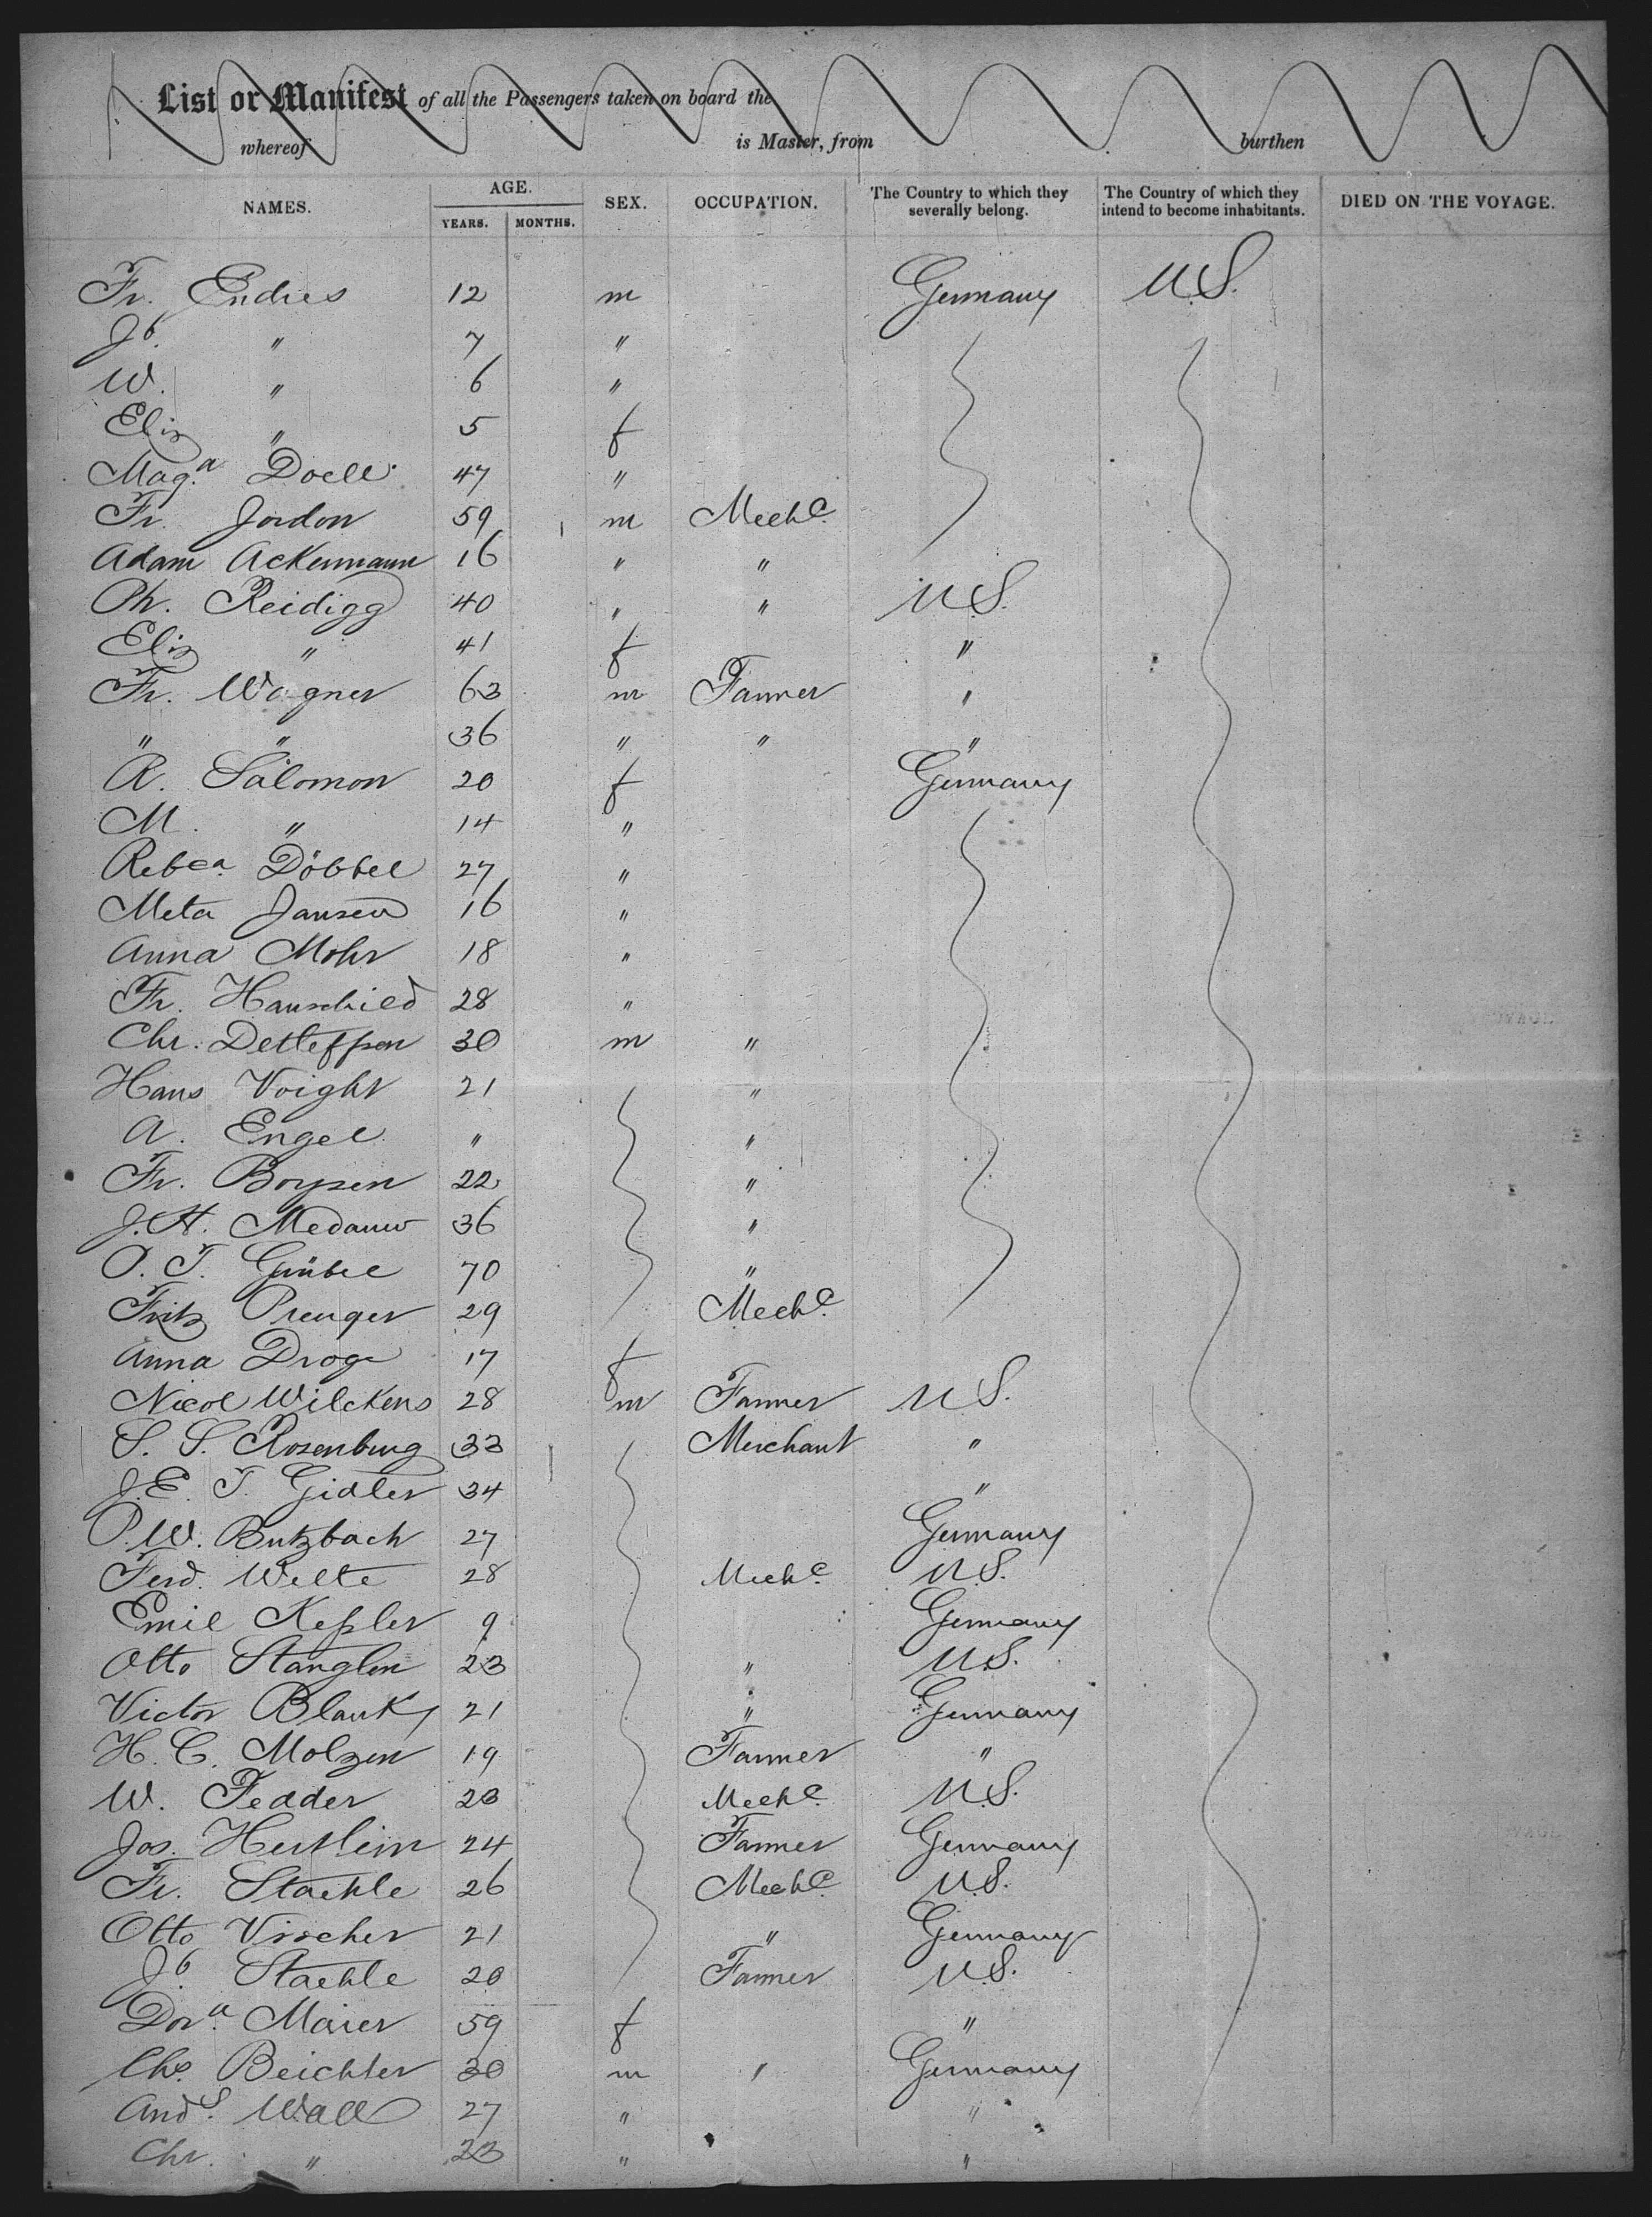 List or Manifest of all the Passengers taken on board the
whereof is Master, from burthen
NAMES. AGE. YEARS. MONTHS. SEX. OCCUPATION. The Country to which they severally belong. The Country of which they intend to become inhabitants. DIED ON THE VOYAGE.
Fr. Endres 12 m Germany U.S.
Jb. " 7 "
W. " 6 "
Eliz " 5 f
Mag.a Doell 47 "
Fr. Jordon 59 m Mechc.
Adam Ackermann 16 " "
Ph. Reidigg 40 " " U.S.
Eliz " 41 f "
Fr. Wagner 63 m Farmer "
" " 36 " " "
R. Salomon 20 f Germany
M. " 14 "
Rebca. Döbbel 27 "
Meta Jansen 16 "
Anna Mohr 18 "
Fr. Hauschild 28 "
Chr. Detleffsen 30 m "
Hans Voight 21 "
A. Engel " "
Fr. Boysen 22 "
J.H. Medauw 36 "
O. T. Grübel 70 "
Fritz Prenger 29 Mechc.
Anna Droge 17 f
Nicol Wilckens 28 m Farmer U.S.
S. S. Rosenburg 33 Merchant "
J.E. T. Gidler 34 "
P.W. Butzbach 27 Germany
Ferd. Welte 28 Mechc. U.S.
Emil Kessler 9 Germany
Otto Stanglen 23 " U.S.
Victor Blanky 21 " Germany
H. C. Molzen 19 Farmer "
W. Fedder 23 Mechc. U.S.
Jos. Hertlein 24 Farmer Germany
Fr. Staehle 26 Mechc. U.S.
Otto Visscher 21 " Germany
Jb. Staehle 20 Farmer U.S.
Dora. Maier 59 f "
Chs. Beichter 30 m " Germany
Ands. Wall 27 " "
Chr. " 23 " "